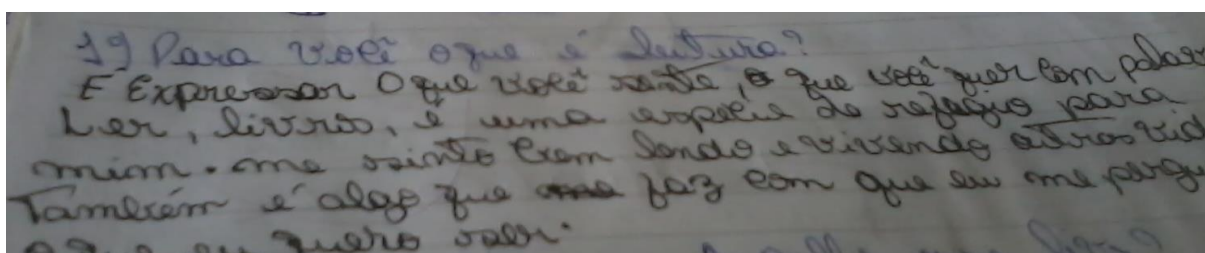 19 Para você oque é leitura?
É Expressar O que você sente, o que você quer com palavr
Ler, livros, é uma espécie de refúgio para
mim. me sinto bem lendo e vivendo outras vid
Também é algo que faz com que eu me pergu
oque eu quero ser.